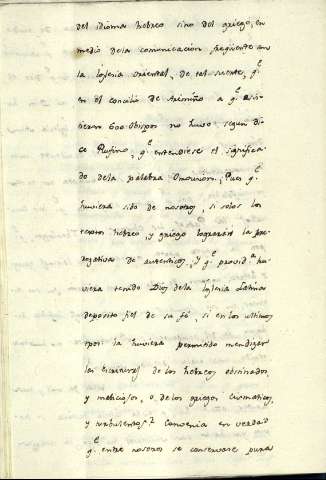 del idioma hebreo sino del griego, en
medio dela comunicacion frequente con
la Iglesia oriental, de tal suerte, q.e
en el concilio de Arimino a q.e asis-
tieron 600 obispos no huvo, segun di-
ce Rufino, q.e entendiese el significa-
do dela palabra Omousion, Pues q.e
huviera sido de nosotros, si solos los
textos hebreo, y griego lograran la pre-
rogativa de autenticos, y q.e provid.a hu-
viera tenido Dios dela Iglesia Latina
deposito fiel de su fé, si en los ultimos
tpos. la huviera permitido mendigar
las escrituras de los hebreos obstinados,
y maliciosos, o de los griegos cismaticos,
y turbulentos? Convenia en verdad
q.e entre nosotros se conservase pura